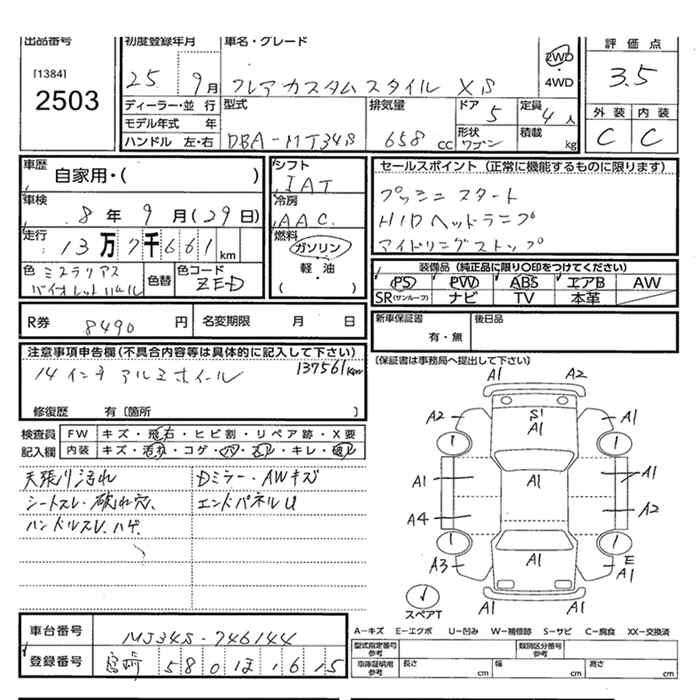 出品番号 初度登録年月 車名・グレード 評価点
[1384]
2503
25 9月 フレア カスタム スタイル XS 2WD・4WD 3.5
ディーラー・並行 型式 排気量 ドア 定員 外装 内装
モデル年式 年 5 4人 C C
ハンドル 左・右 DBA-MJ34S 658 CC 形状 ワゴン 積載 kg
車歴 自家用・( ) シフト IAT セールスポイント (正常に機能するものに限ります)
車検 8年 9月(29日) 冷房 AAC プッシュ スタート
HIDヘッドランプ
走行 13万7千661km 燃料 ガソリン・軽・油 ( ) アイドリングストップ
色 ミステリアスバイオレットパール 色替 色コード ZED 装備品 (純正品に限り○印をつけてください)
PS PW ABS エアB AW
SR(サンルーフ) ナビ TV 本革
R券 8490円 名変期限 月 日 新車保証書 有・無 後日品
注意事項申告欄(不具合内容等は具体的に記入して下さい) (保証書は事務局へ提出して下さい)
137561km
14インチ アルミホイール
修復歴 有〔箇所 〕
検査員 FW キズ・飛石・ヒビ割・リペア跡・X要
記入欄 内装 キズ・汚れ・コゲ・穴・スレ・キレ・破レ
天張リ汚れ Dミラー・AWキズ
シートスレ・破れ穴、 エンドパネルU
ハンドルスレ・ハゲ、
A1 A1
A2 S1 A1 A1
A1 A1 A1
A4 A2
A3 A1 E A1
A1 A1
スペアT
A−キズ E−エクボ U−凹み W−補修跡 S−サビ C−腐食 XX−交換済
車台番号 MJ34S-746144
型式指定番号 参考 類別区分番号 参考
登録番号 宮崎 580 ほ 1615
車庫証明用 参考 長さ cm 幅 cm 高さ cm